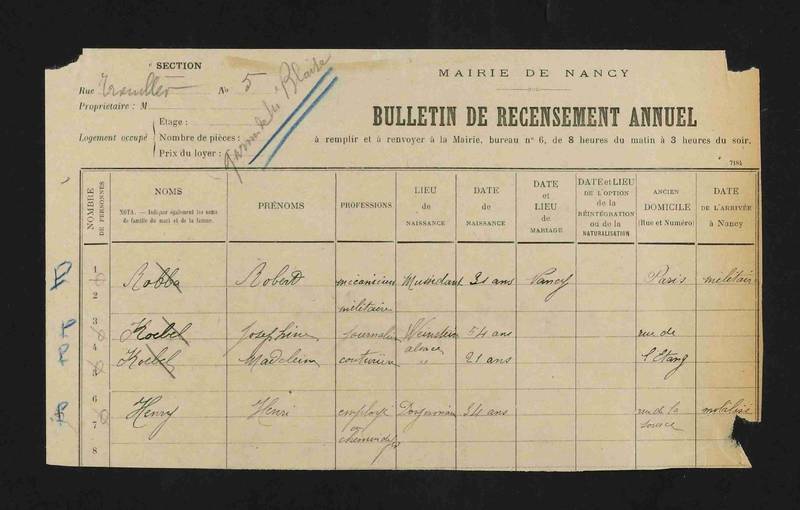 SECTION
Rue No 5
MAIRIE DE NANCY
Propriétaire : M
Logement occupé
Etage :
Nombre de pièces :
Prix du loyer :
BULLETIN DE RECENSEMENT ANNUEL
à remplir et à renvoyer à la Mairie, bureau n° 6, de 8 heures du matin à 3 heures du soir.
7184
NOMBRE DE PERSONNES
NOMS
NOTA. — Indiquer également les noms de famille du mari et de la femme.
PRÉNOMS
PROFESSIONS
LIEU de NAISSANCE
DATE de NAISSANCE
DATE et LIEU de MARIAGE
DATE et LIEU DE L'OPTION de la RÉINTÉGRATION ou de la NATURALISATION
ANCIEN DOMICILE (Rue et Numéro)
DATE DE L'ARRIVÉE à Nancy
1 Robba Robert mécanicien Mussidant 31 ans Nancy Paris militair
2 militaire
3 Koebel Joséphine journalière 54 ans rue de
4 alsace
5 Koebel Madeleine couturière " 21 ans l'Etang
6 Henry Henri employé 34 ans rue de la mobilisé
7 source
8